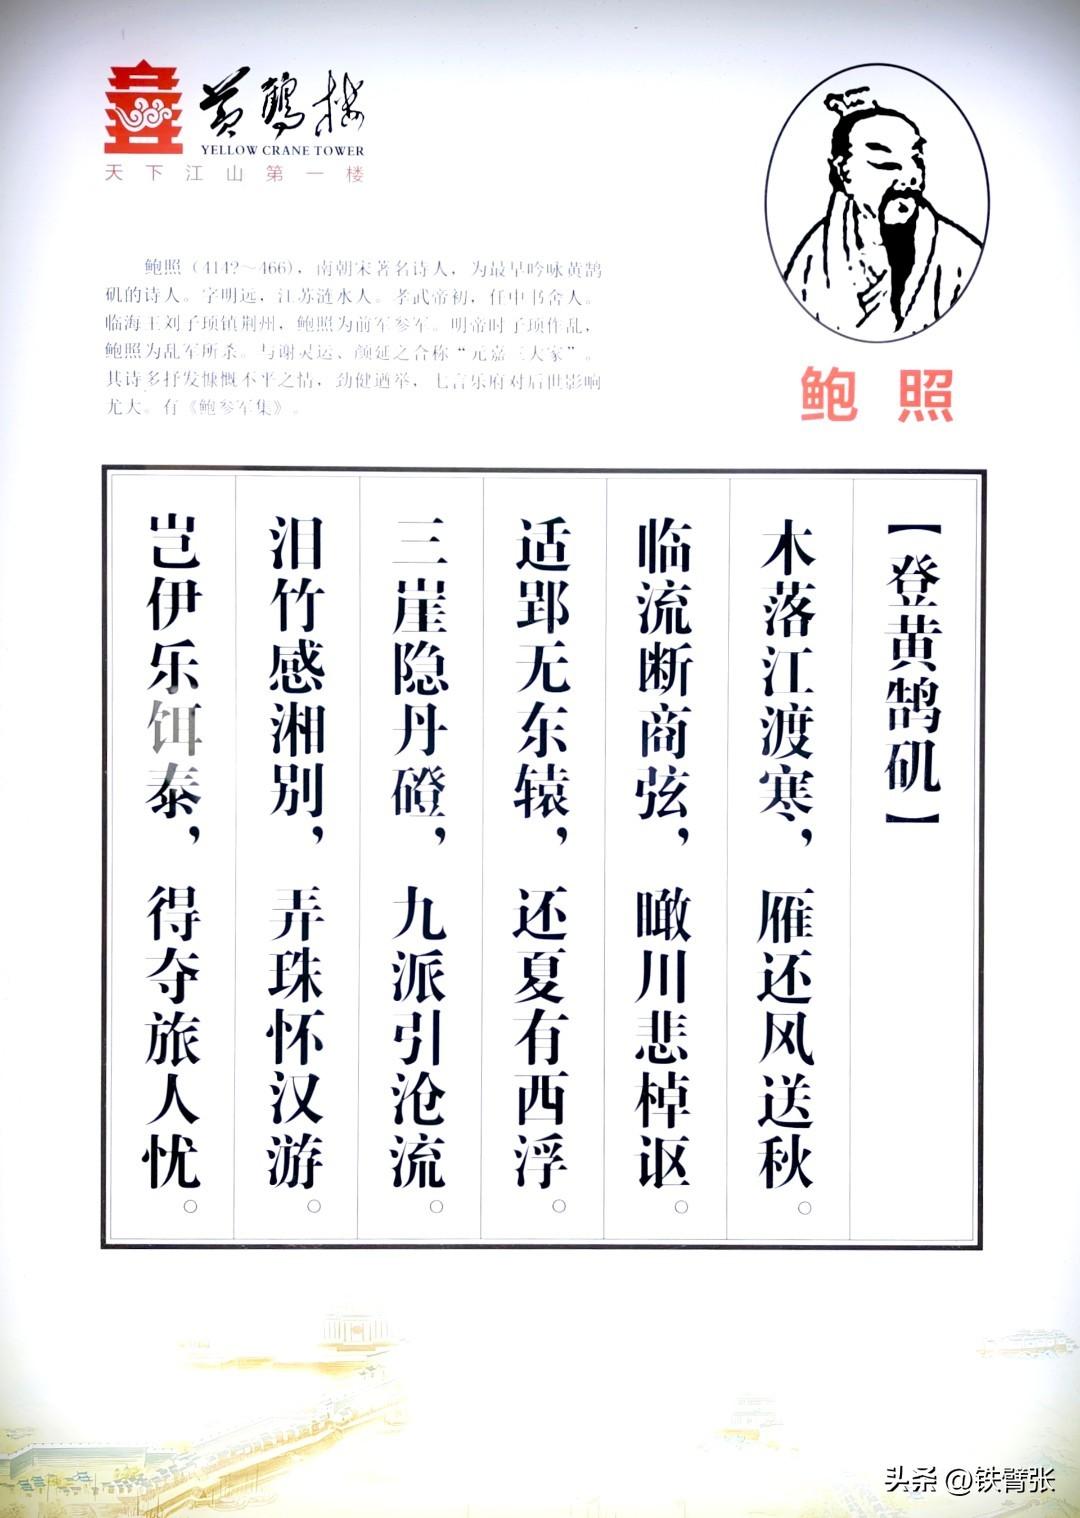 黄鹤楼
YELLOW CRANE TOWER
天下江山第一楼
鲍照（414?～466），南朝宋著名诗人，为最早吟咏黄鹄
矶的诗人。字明远，江苏涟水人。孝武帝初，任中书舍人。
临海王刘子顼镇荆州，鲍照为前军参军。明帝时子顼作乱，
鲍照为乱军所杀。与谢灵运、颜延之合称“元嘉三大家”。
其诗多抒发慷慨不平之情，劲健遒举，七言乐府对后世影响
尤大。有《鲍参军集》。
鲍照
【登黄鹄矶】
木落江渡寒，雁还风送秋。
临流断商弦，瞰川悲棹讴。
适郢无东辕，还夏有西浮。
三崖隐丹磴，九派引沧流。
泪竹感湘别，弄珠怀汉游。
岂伊乐饵泰，得夺旅人忧。
头条 @铁臂张